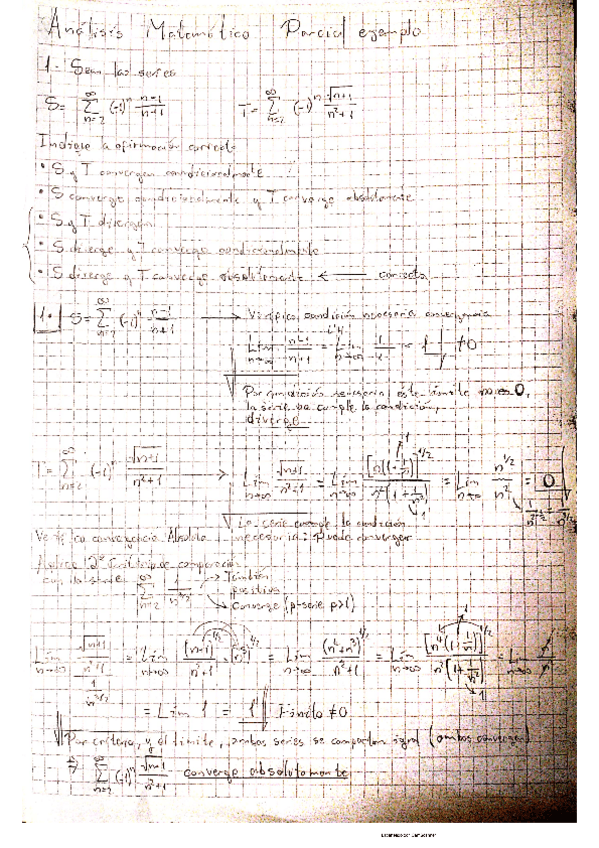 Análisis Matemático Parcial ejemplo
1- Sean las series
S= ∑_{n=2}^{∞} (-1)^n (n-1)/(n+1)    T= ∑_{n=2}^{∞} (-1)^n √(n+1)/(n²+1)
Indique la afirmación correcta
• S y T convergen condicionalmente
• S converge condicionalmente y T converge absolutamente
• S y T divergen
• S diverge y T converge condicionalmente
• S diverge y T converge absolutamente ← correcta
1• S= ∑_{n=2}^{∞} (-1)^n (n-1)/(n+1) → Verifico condición necesaria convergencia
Lim_{n→∞} (n-1)/(n+1) = L'H Lim_{n→∞} 1/1 = 1 ≠0
Por condición necesaria este límite no es 0,
la serie no cumple la condición,
diverge
T= ∑_{n=2}^{∞} (-1)^n √(n+1)/(n²+1) → Lim_{n→∞} √(n+1)/(n²+1) = Lim_{n→∞} [n(1+1/n)]^{1/2}/n²(1+1/n²) = Lim_{n→∞} n^{1/2}/n² = 0
La serie cumple la condición
necesaria: Puede converger
Verifico convergencia Absoluta
Aplico 2º Criterio de comparación
con la serie ∑_{n=2}^{∞} 1/n^{3/2} → También
positiva
→ Converge (p-serie p>1)
Lim_{n→∞} (√(n+1)/(n²+1))/(1/n^{3/2}) = Lim_{n→∞} (n+1)^{1/2}·(n³)^{1/2}/(n²+1) = Lim_{n→∞} (n⁴+n³)^{1/2}/(n²+1) = Lim_{n→∞} [n⁴(1+1/n)]^{1/2}/n²(1+1/n²) = Lim_{n→∞} n²/n²
= Lim 1 = 1 Finito ≠0
Por criterio, y el límite, ambas series se comportan igual (ambas convergen)
⇒ ∑_{n=2}^{∞} (-1)^n √(n+1)/(n²+1) converge absolutamente